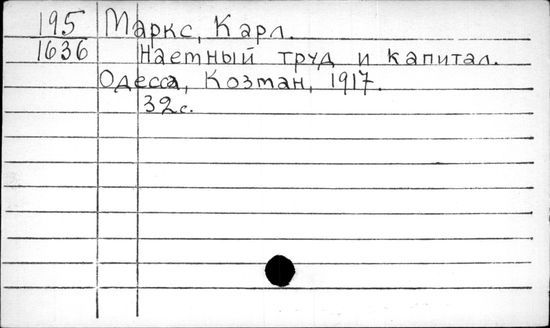 195 Маркс, Карл.
1636 Наемный труд и капитал.
Одесса, Козман, 1917.
32с.